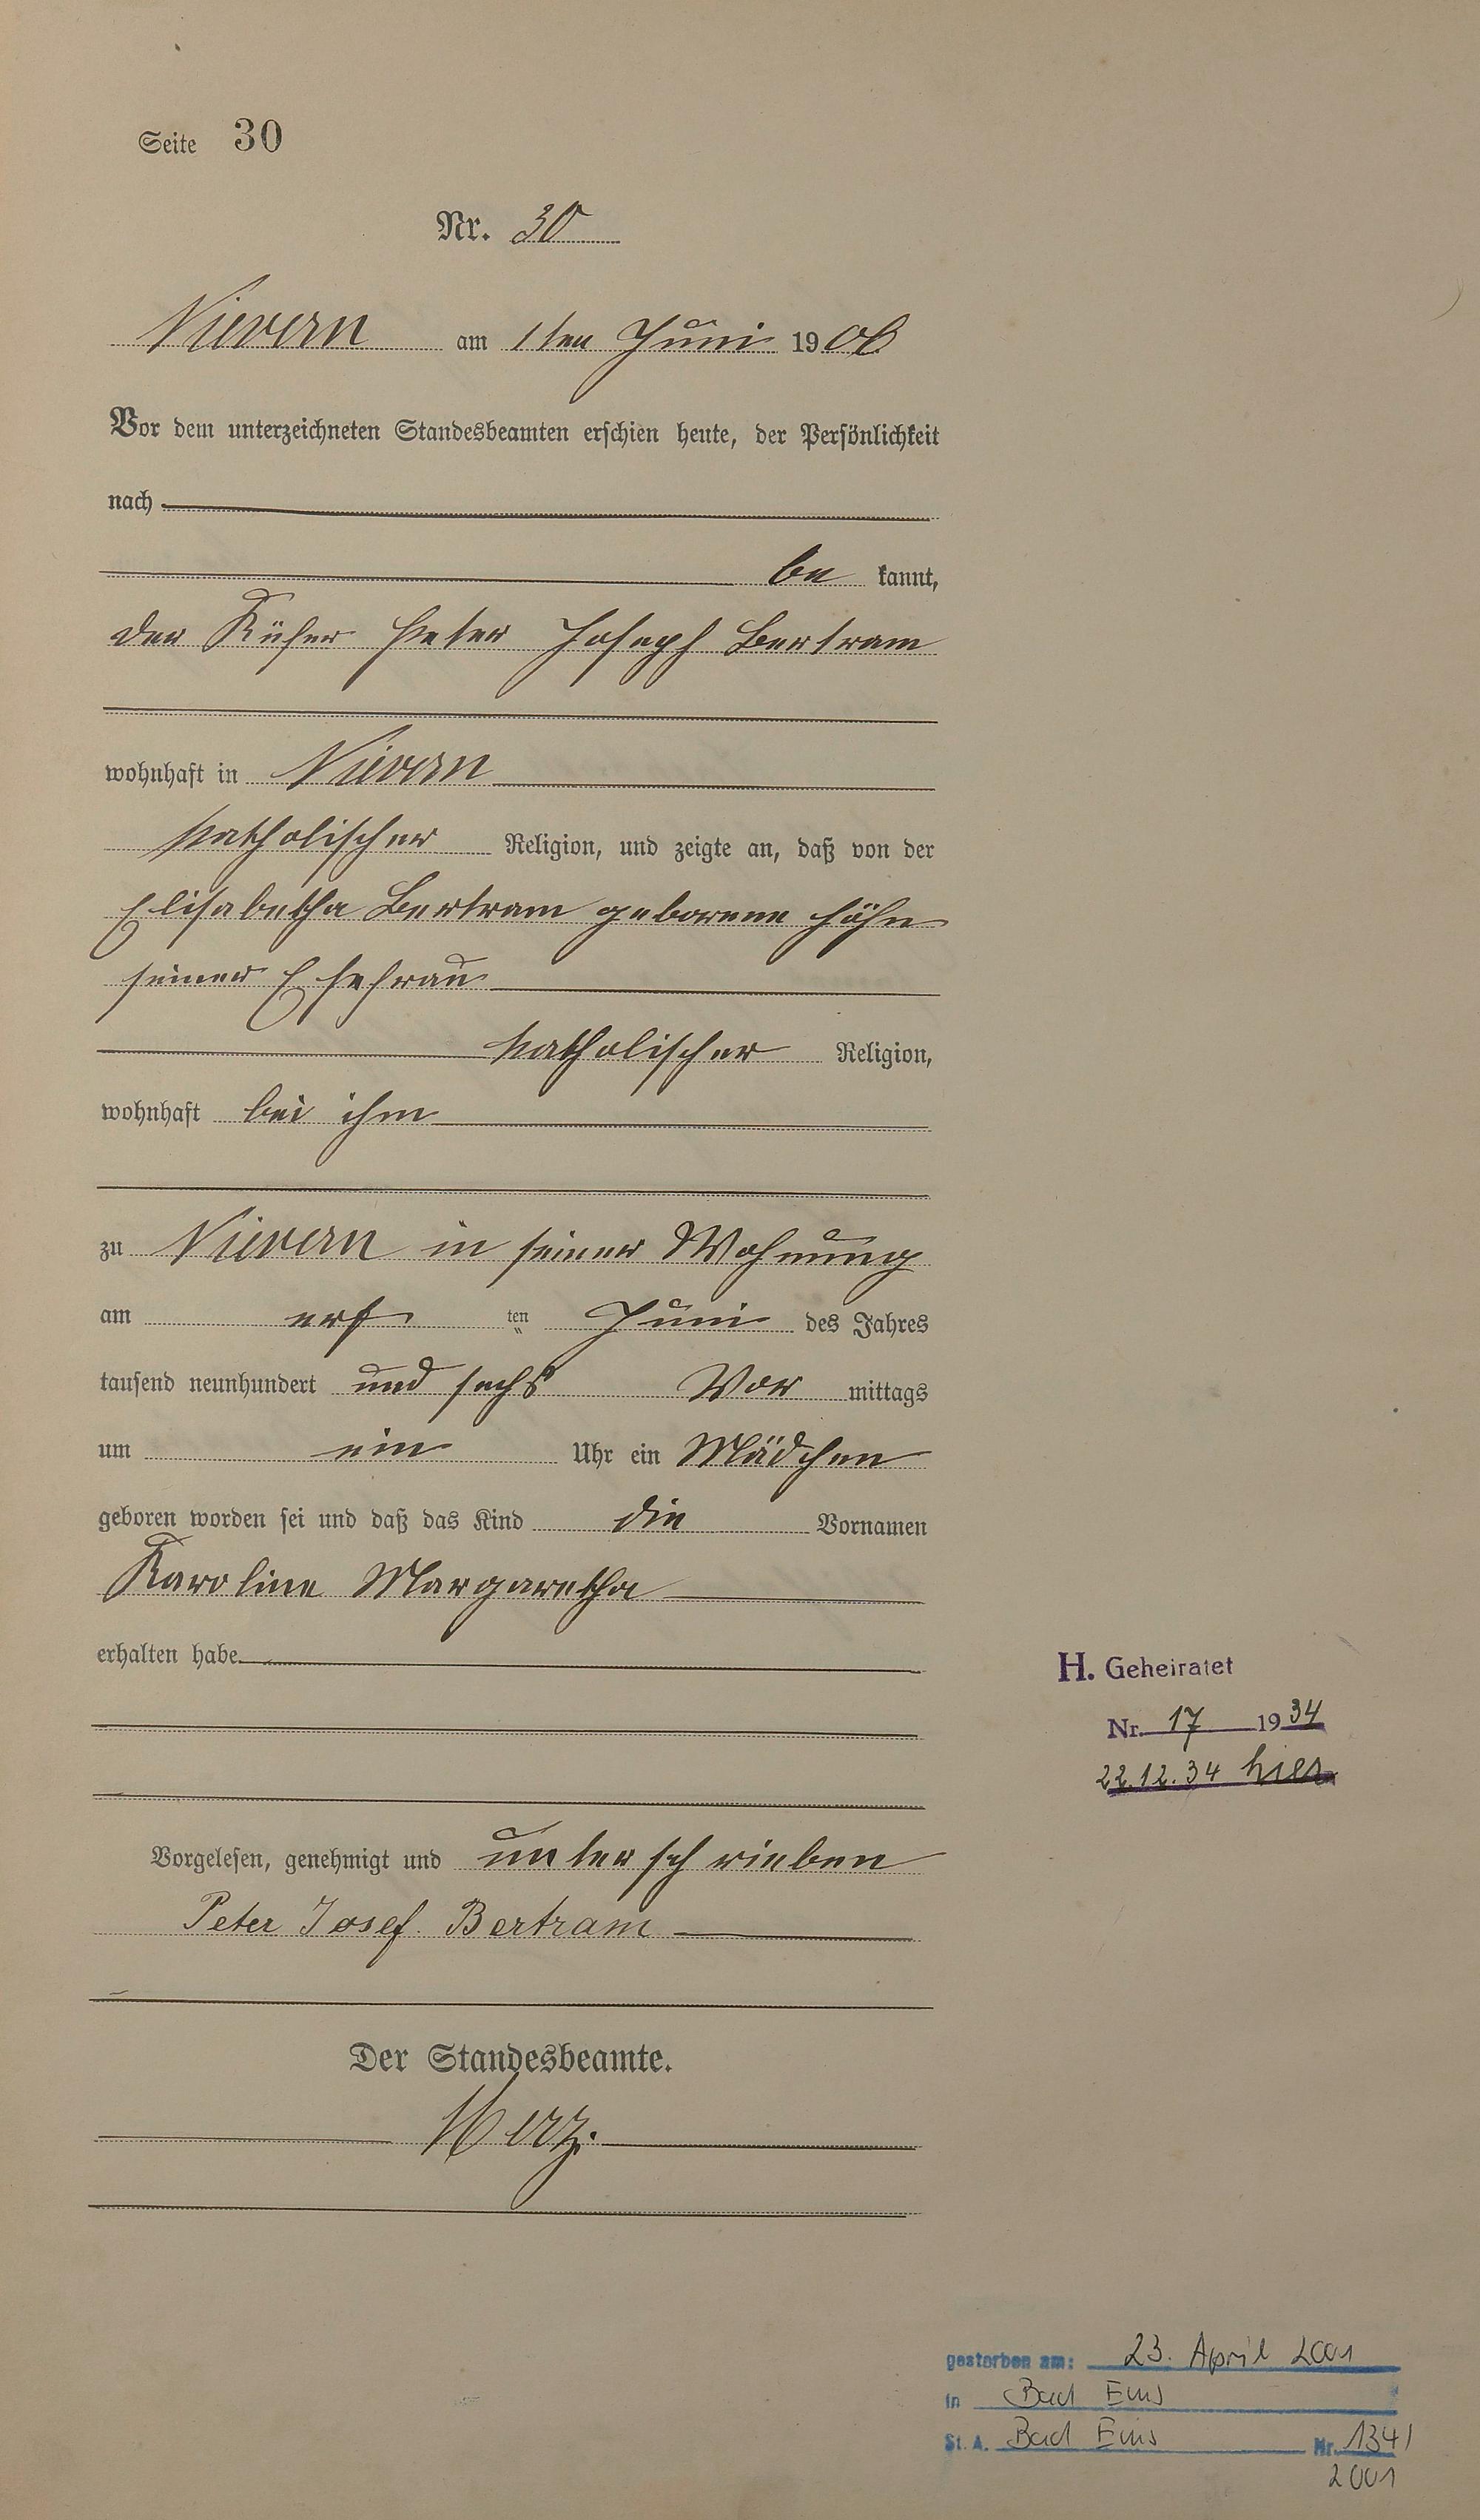 Seite 30
Nr. 30
Nievern am 1ten Juni 1906
Vor dem unterzeichneten Standesbeamten erschien heute, der Persönlichkeit
nach
be kannt,
der Küfer Peter Joseph Bertram
wohnhaft in Nievern
katholischer Religion, und zeigte an, daß von der
Elisabetha Bertram geborene Höhn
seiner Ehefrau
katholischer Religion,
wohnhaft bei ihm
zu Nievern in seiner Wohnung
am ers ten Juni des Jahres
tausend neunhundert und sechs Vor mittags
um ein Uhr ein Mädchen
geboren worden sei und daß das Kind die Vornamen
Karoline Margaretha
erhalten habe
H. Geheiratet
Nr. 17 1934
22.12.34 hier
Vorgelesen, genehmigt und unterschrieben
Peter Josef Bertram
Der Standesbeamte.
Merz.
gestorben am: 23. April 2001
in Bad Ems
St. A. Bad Ems Nr. 134/
2001